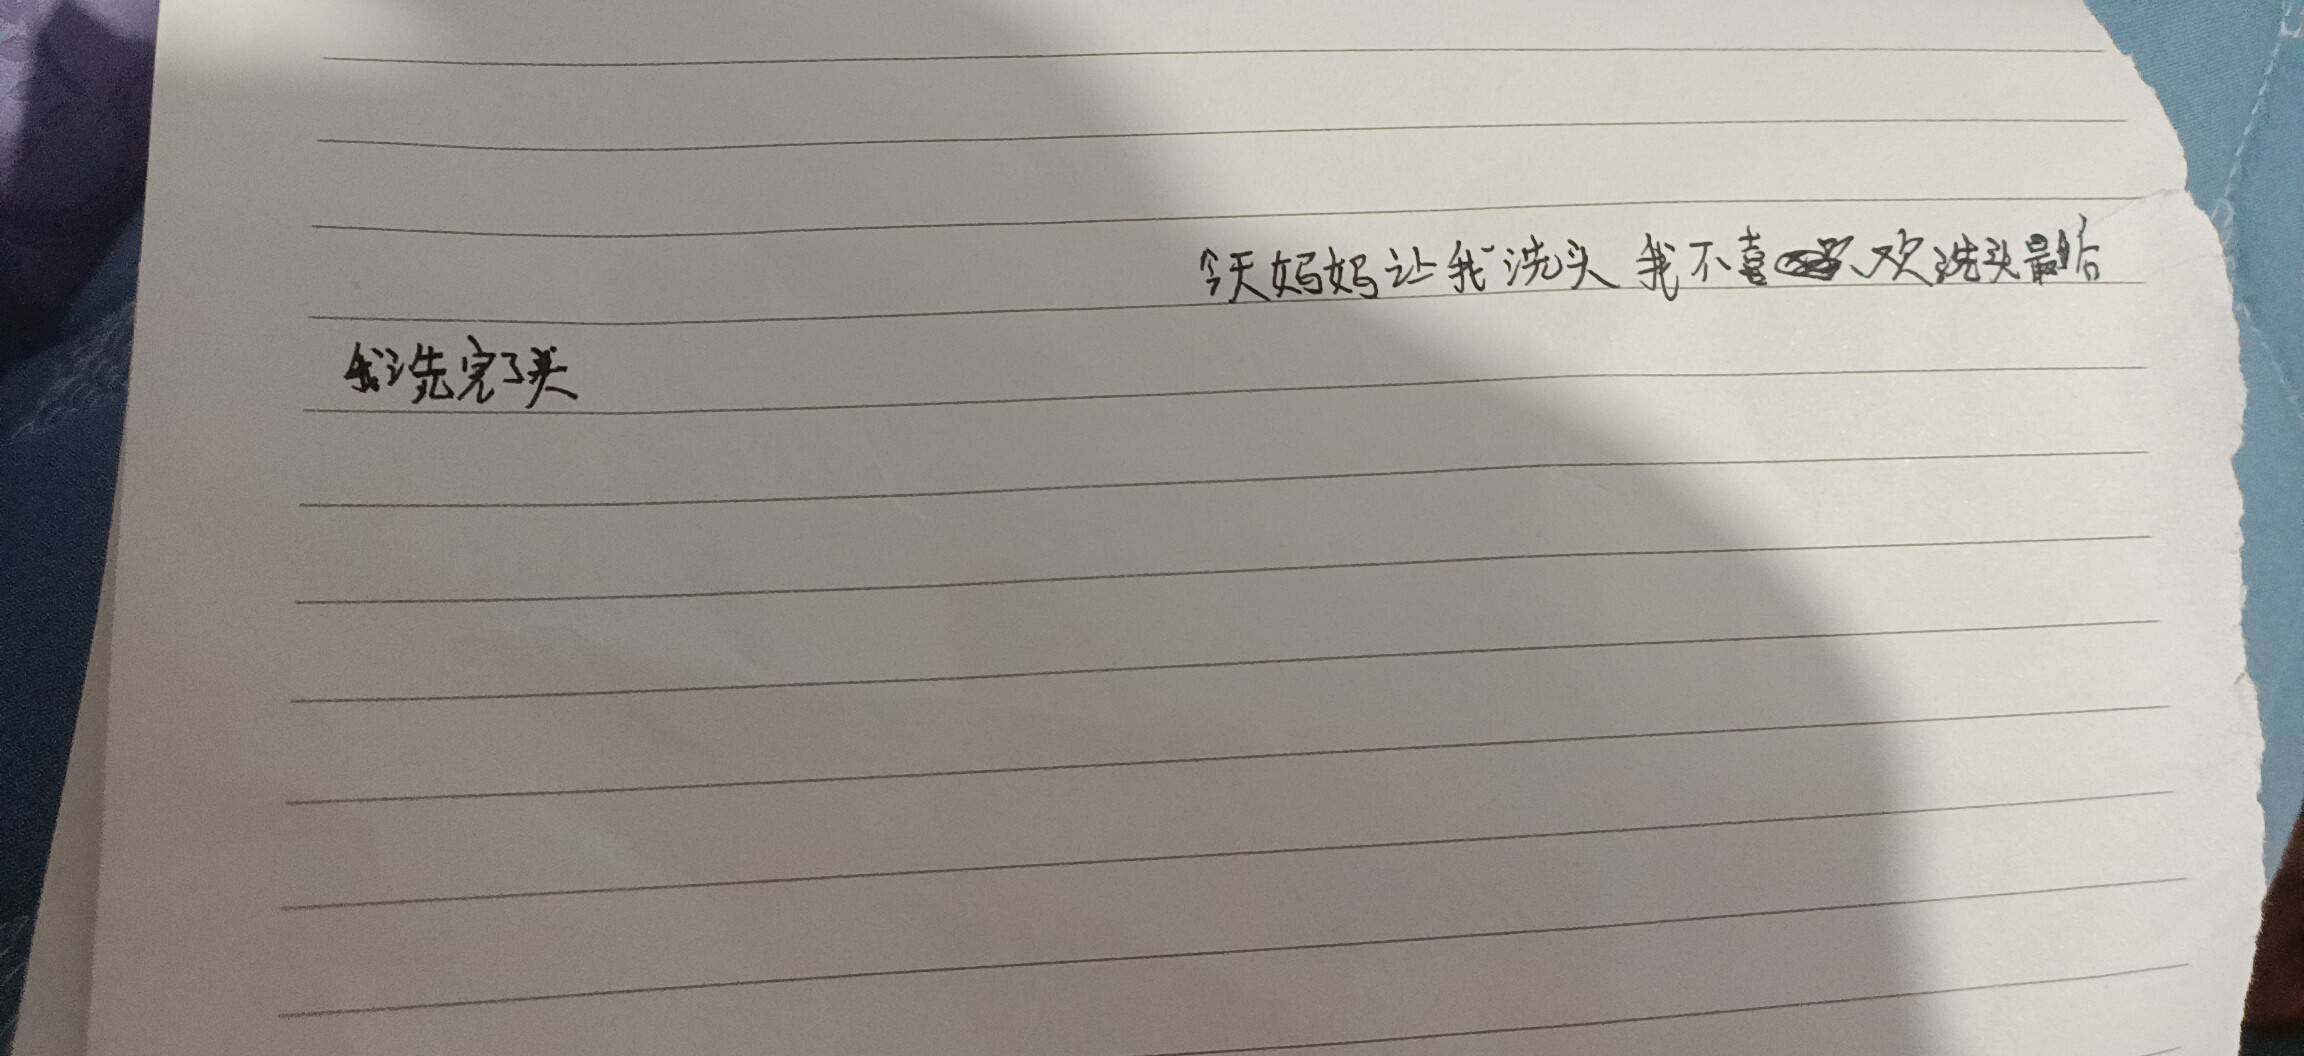 今天妈妈让我洗头 我不喜欢洗头最后
我洗完了头